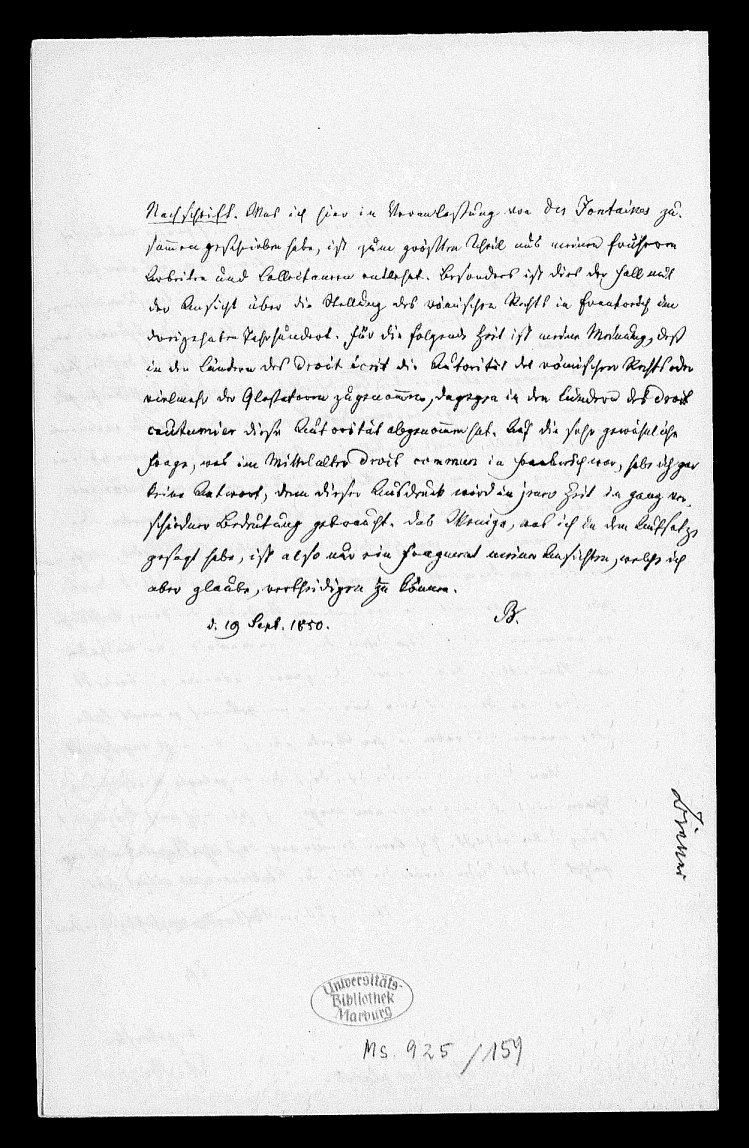 Nachschrift. Was ich hier in Veranlassung von Des Fontaines zu-
sammengeschrieben habe, ist zum größten Theil aus meinen früheren
Arbeiten und Collectaneen entlehnt. Besonders ist dies der Fall mit
der Ansicht über die Stellung des römischen Rechts in Frankreich im
dreizehnten Jahrhundert. Für die folgende Zeit ist meine Meinung, daß
in den Ländern des Droit écrit die Autorität des römischen Rechts oder
vielmehr der Glossatoren zugenommen, dagegen in den Ländern des droit
coutumier diese Autorität abgenommen hat. Auf die sehr gewöhnliche
Frage, was im Mittelalter Droit commun in Frankreich war, habe ich gar
keine Antwort, denn dieser Ausdruck wird in jener Zeit in ganz ver-
schiedner Bedeutung gebraucht. Das Wenige, was ich in dem Aufsatze
gesagt habe, ist also nur ein Fragment meiner Ansichten, welche ich
aber glaube, vertheidigen zu können.
d. 19 Sept. 1850. B.
Biener
Universitäts-
Bibliothek
Marburg
Ms. 925/159